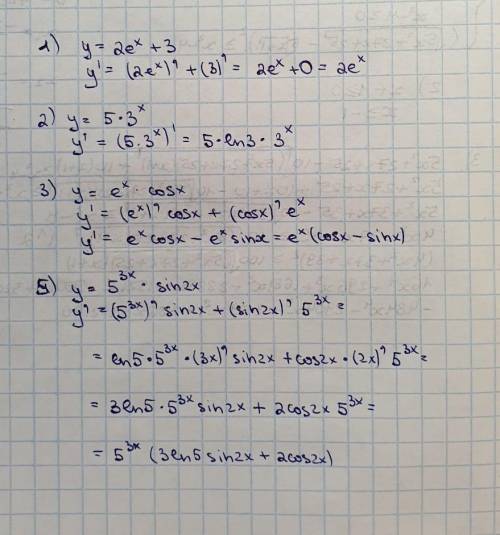 1) y = 2eˣ + 3
y' = (2eˣ)' + (3)' = 2eˣ + 0 = 2eˣ
2) y = 5·3ˣ
y' = (5·3ˣ)' = 5·ln3·3ˣ
3) y = eˣ · cosx
y' = (eˣ)' cosx + (cosx)' eˣ
y' = eˣ cosx − eˣ sinx = eˣ (cosx − sinx)
5) y = 5³ˣ · sin2x
y' = (5³ˣ)' sin2x + (sin2x)' 5³ˣ =
= ln5·5³ˣ·(3x)' sin2x + cos2x·(2x)' 5³ˣ =
= 3ln5·5³ˣ sin2x + 2cos2x 5³ˣ =
= 5³ˣ (3ln5 sin2x + 2cos2x)